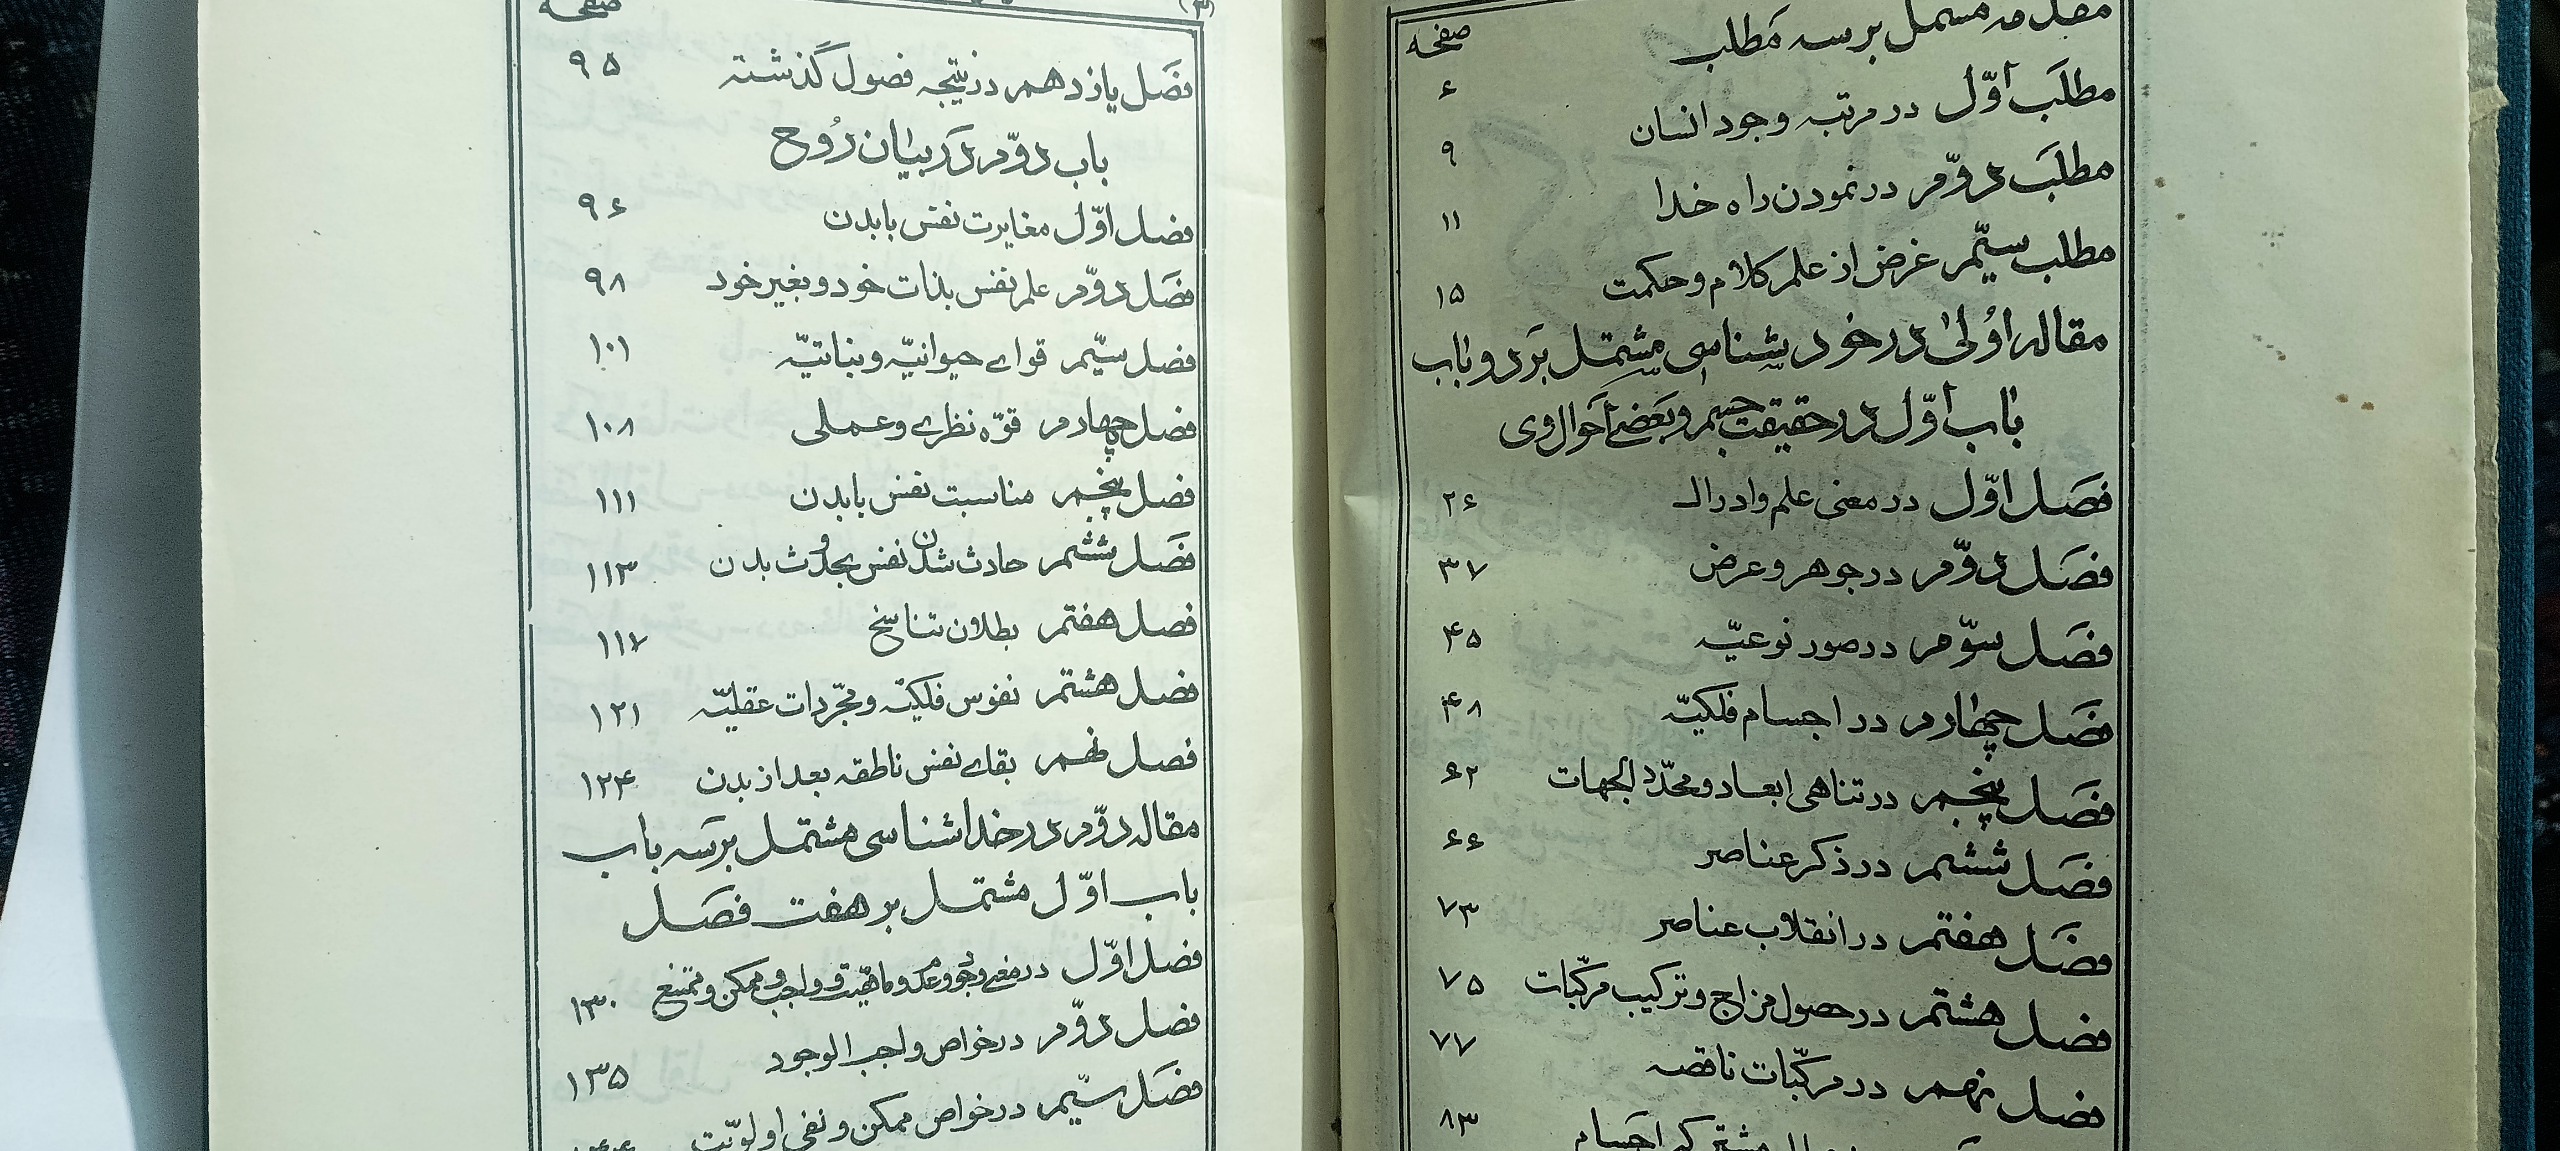 مقدمه مشتمل بر سه مطلب
صفحه
مطلب اوّل در مرتبه وجود انسان ۶
مطلب دوّم در نمودن راه خدا ۹
۱۱
مطلب سیّم غرض از علم کلام و حکمت ۱۵
مقاله اُولیٰ در خود شناسی مشتمل بر دو باب
باب اوّل در حقیقت جسم و بعضے احوال وی
فصل اوّل در معنی علم و ادراک ۲۶
فصل دوّم در جوهر و عرض ۳۷
فصل سوّم در صور نوعیّه ۴۵
فصل چهارم در اجسام فلکیّه ۴۸
فصل پنجم در تناهی ابعاد و محدّد الجهات ۶۲
فصل ششم در ذکر عناصر ۶۶
فصل هفتم در انقلاب عناصر ۷۳
فصل هشتم در حصول مزاج و ترکیب مرکّبات ۷۵
فصل نهم در مرکّبات ناقصه ۷۷
۸۳
اجسام
(۳)
صفحه
فصل یازدهم در نتیجه فصول گذشته ۹۵
باب دوّم در بیان رُوح
فصل اوّل مغایرت نفس با بدن ۹۶
فصل دوّم علم نفس بذات خود و بغیر خود ۹۸
فصل سیّم قوای حیوانیّه و نباتیّه ۱۰۱
فصل چهارم قوّه نظرے و عملی ۱۰۸
فصل پنجم مناسبت نفس با بدن ۱۱۱
فصل ششم حادث شدن نفس بحدوث بدن ۱۱۳
فصل هفتم بطلان تناسخ ۱۱۷
فصل هشتم نفوس فلکیّه و مجّردات عقلیّه ۱۲۱
فصل نهم بقاے نفس ناطقه بعد از بدن ۱۲۴
مقاله دوّم در خدا شناسی مشتمل بر سه باب
باب اوّل مشتمل بر هفت فصل
فصل اوّل در معنے وجود و عدم و ماهیّت و واجب و ممکن و ممتنع ۱۳۰
فصل دوّم در خواص واجب الوجود ۱۳۵
فصل سیّم در خواص ممکن و نفی اولویّت